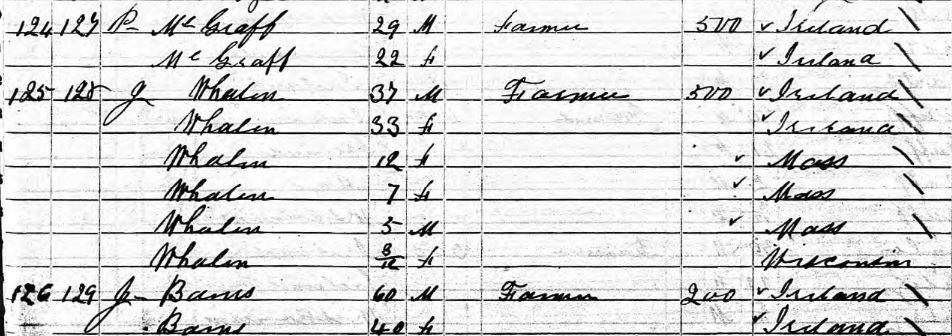 124 127 P- Mc Graff 29 M Farmer 500 ✓ Ireland \
Mc Graff 22 f ✓ Ireland \
125 128 J Whalin 37 M Farmer 500 ✓ Ireland \
Whalin 33 f ✓ Ireland \
Whalin 12 f ✓ Mass \
Whalin 7 f ✓ Mass \
Whalin 5 M ✓ Mass \
Whalin 8/12 f Wisconsin
126 129 J- Barns 60 M Farmer 200 ✓ Ireland \
Barns 40 f ✓ Ireland \